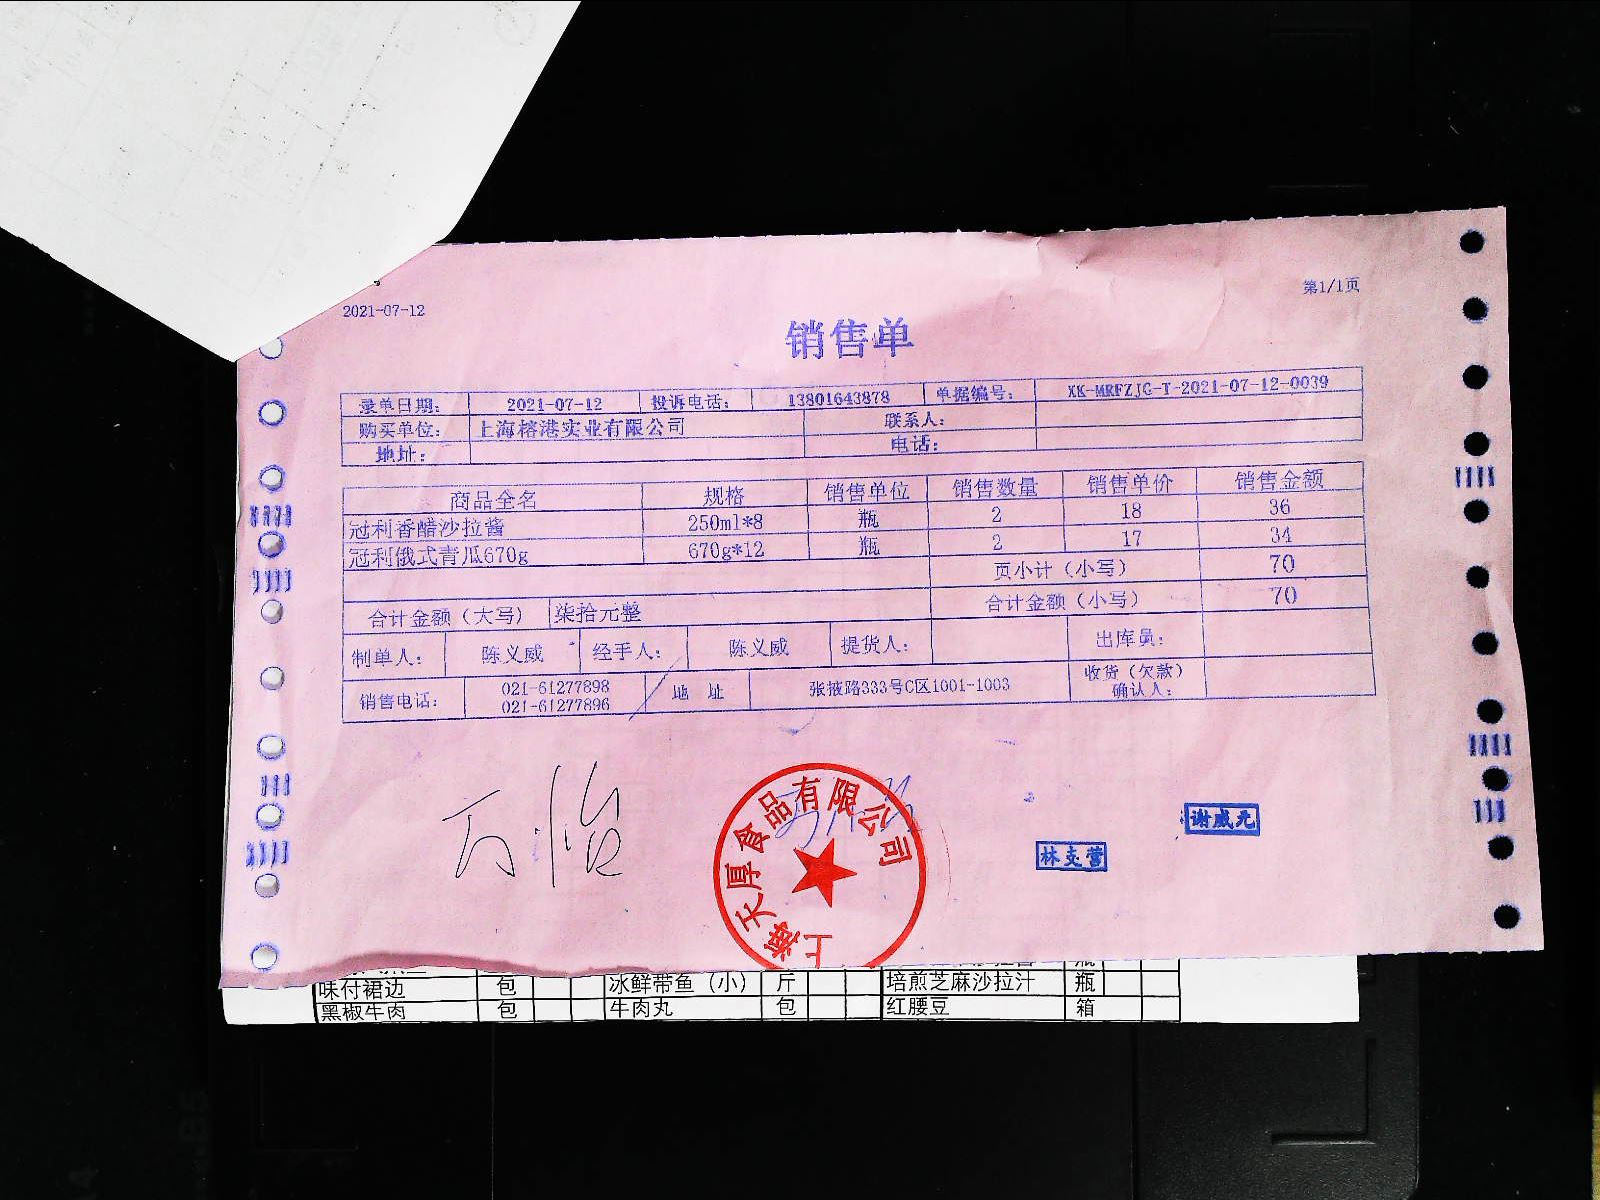 2021-07-12
第1/1页
销售单
录单日期: 2021-07-12 投诉电话: 13801643878 单据编号: XK-MRFZJG-T-2021-07-12-0039
购买单位: 上海榕港实业有限公司 联系人:
地址: 电话:
商品全名 规格 销售单位 销售数量 销售单价 销售金额
冠利香醋沙拉酱 250ml*8 瓶 2 18 36
冠利俄式青瓜670g 670g*12 瓶 2 17 34
页小计（小写） 70
合计金额（大写） 柒拾元整 合计金额（小写） 70
制单人: 陈义威 经手人: 陈义威 提货人: 出库员:
销售电话: 021-61277898 021-61277896 地 址 张掖路333号C区1001-1003 收货（欠款）确认人:
万怡
上海天厚食品有限公司
谢威元
林支营
味付裙边 包 冰鲜带鱼（小） 斤 培煎芝麻沙拉汁 瓶
黑椒牛肉 包 牛肉丸 包 红腰豆 箱